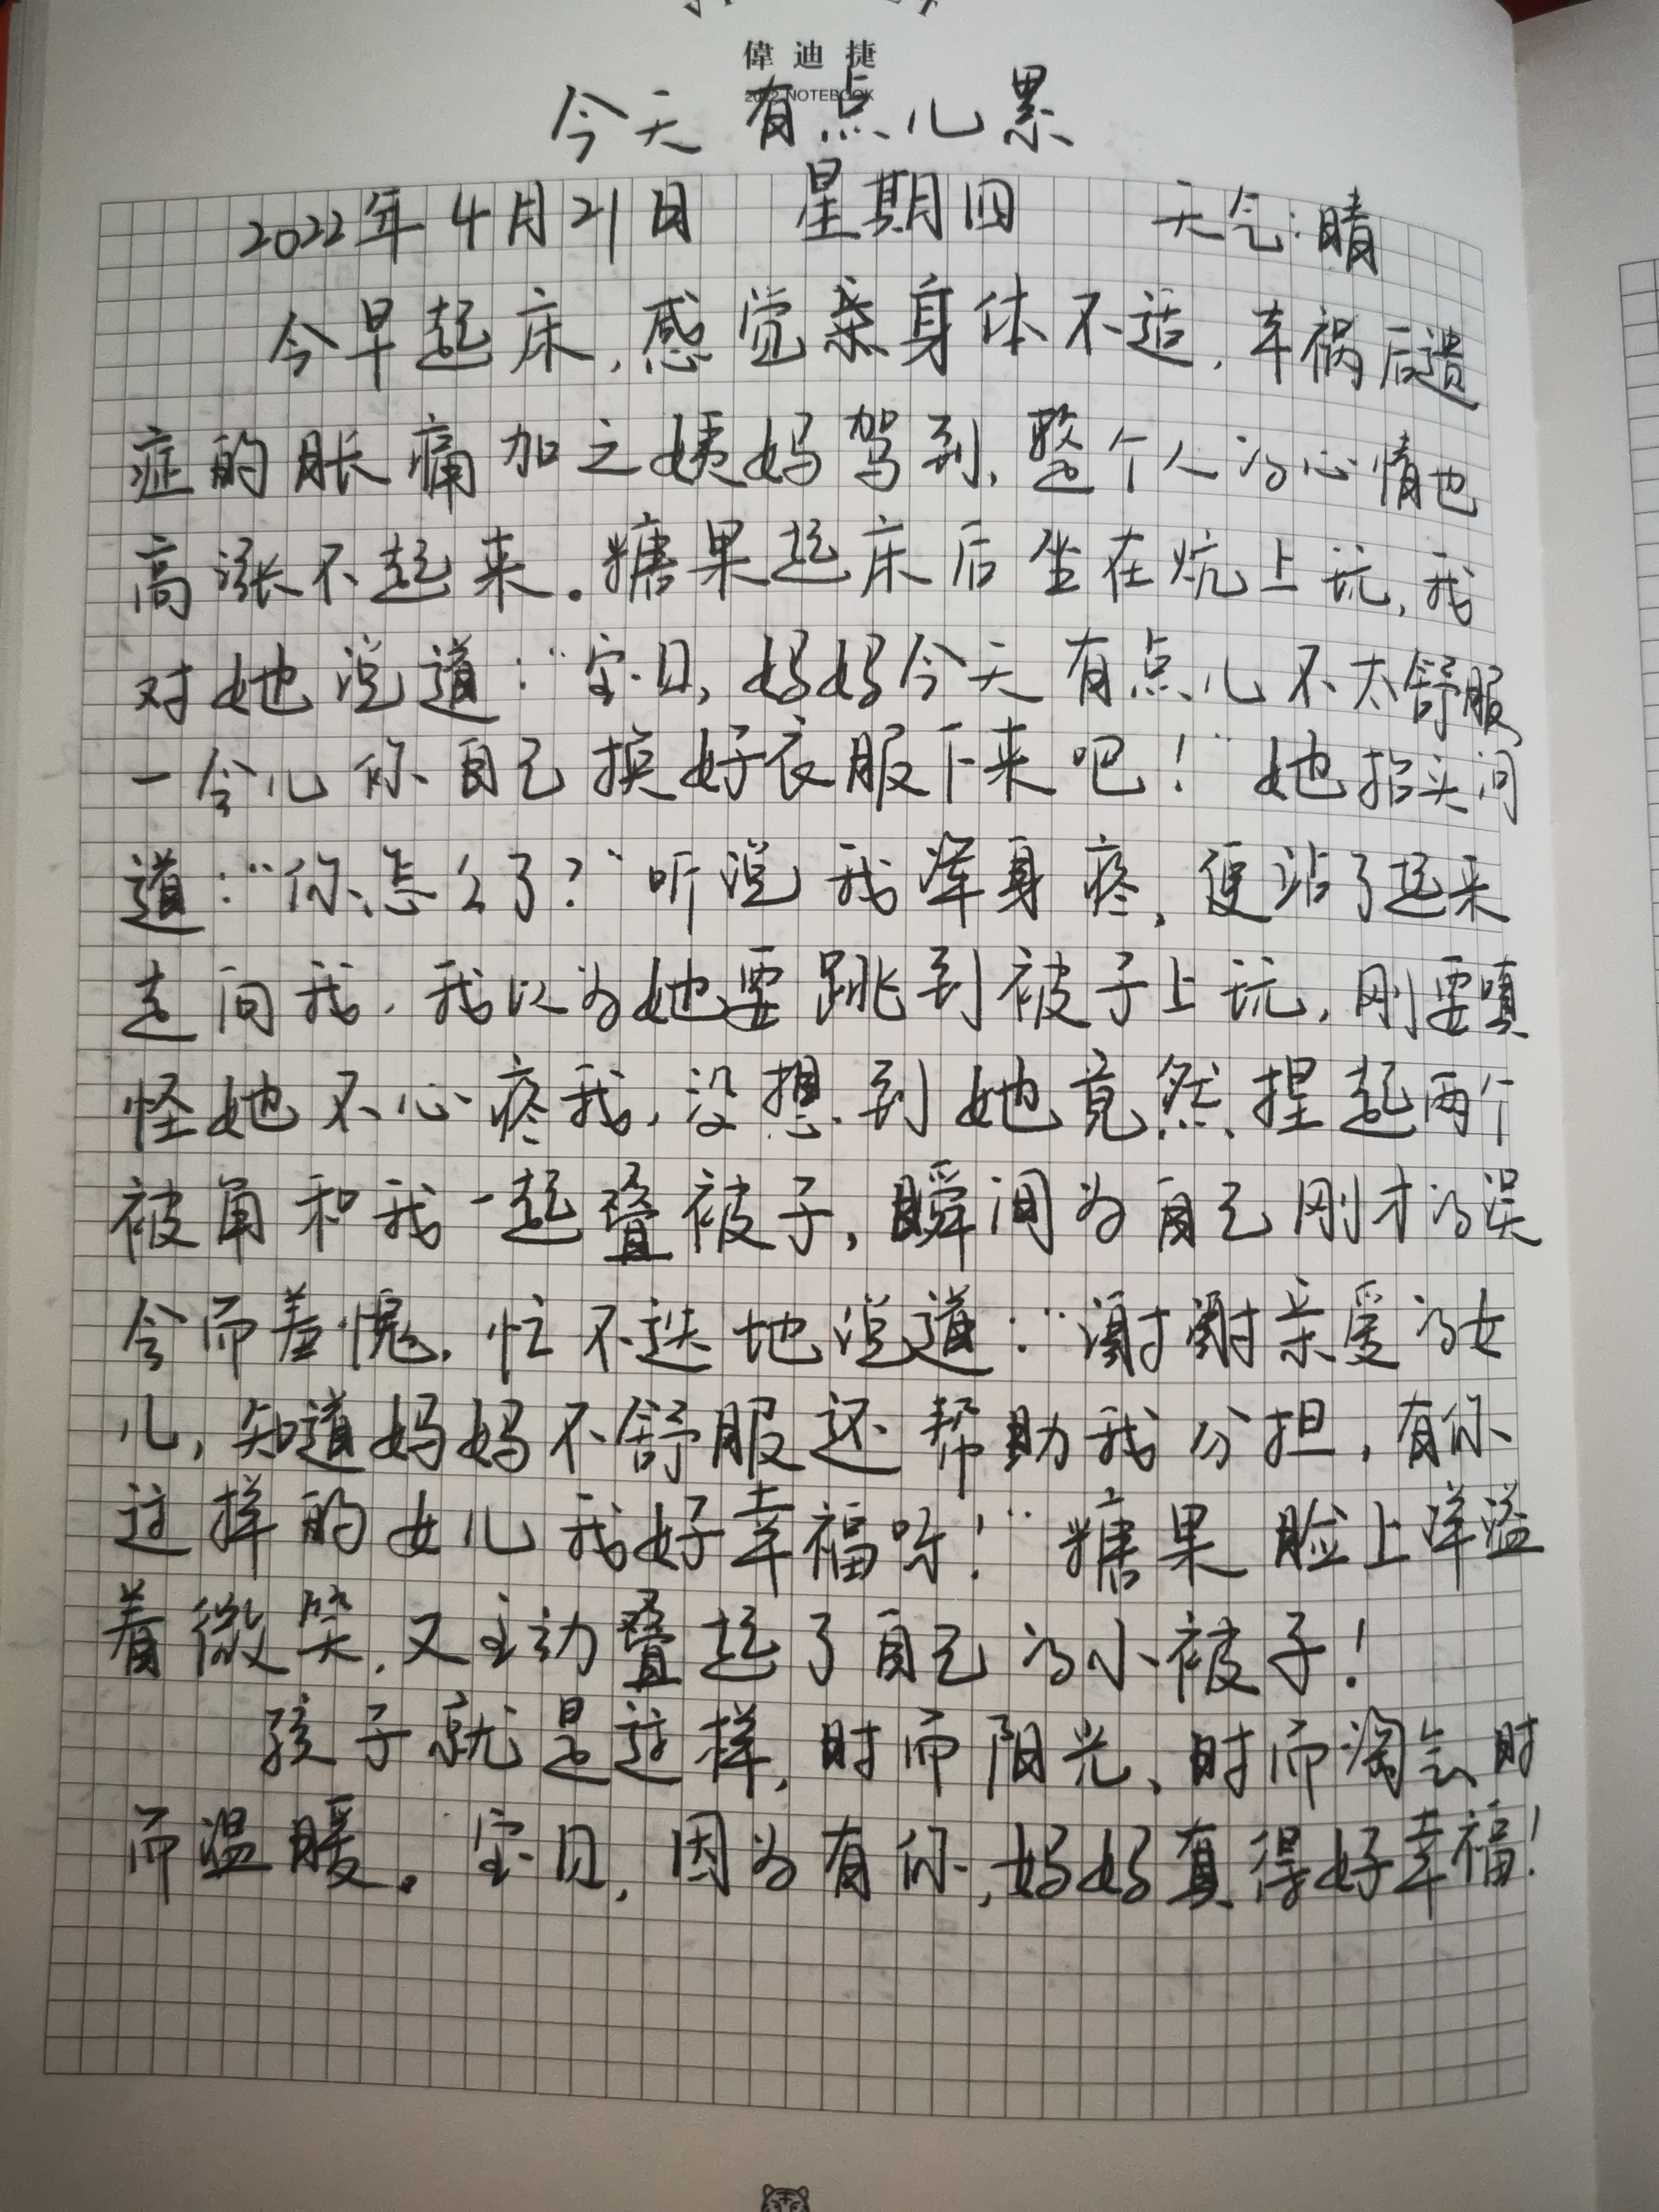 偉迪捷
2022 NOTEBOOK
今天有点儿累
2022年4月21日 星期四 天气:晴
今早起床,感觉亲身体不适,车祸后遗
症的胀痛加之姨妈驾到,整个人的心情也
高涨不起来。糖果起床后坐在炕上玩,我
对她说道:“宝贝,妈妈今天有点儿不太舒服,
一会儿你自己换好衣服下来吧!”她抬头问
道:“你怎么了?”听说我浑身疼,便站了起来
走向我,我以为她要跳到被子上玩,刚要嗔
怪她不心疼我,没想到她竟然捏起两个
被角和我一起叠被子,瞬间为自己刚才的误
会而羞愧,忙不迭地说道:“谢谢亲爱的女
儿,知道妈妈不舒服还帮助我分担,有你
这样的女儿我好幸福呀!”糖果脸上洋溢
着微笑,又主动叠起了自己的小被子!
孩子就是这样,时而阳光、时而淘气、时
而温暖。宝贝,因为有你,妈妈真得好幸福!